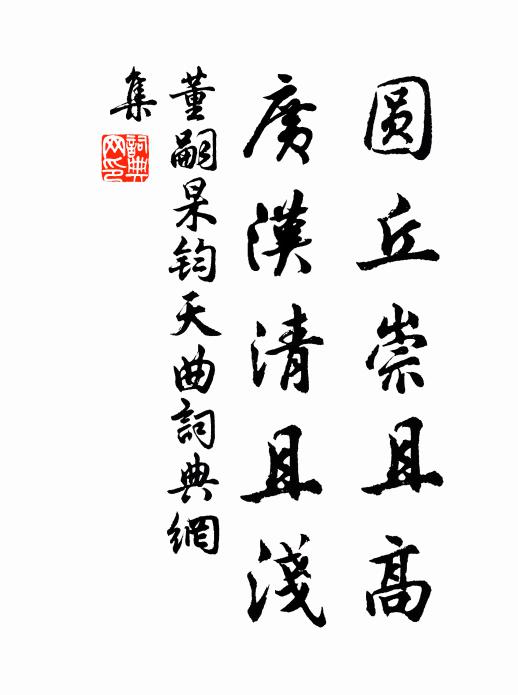 圆丘崇且高
廣漢清且淺
董嗣杲鈞天曲詞典網
集
詞典
网印